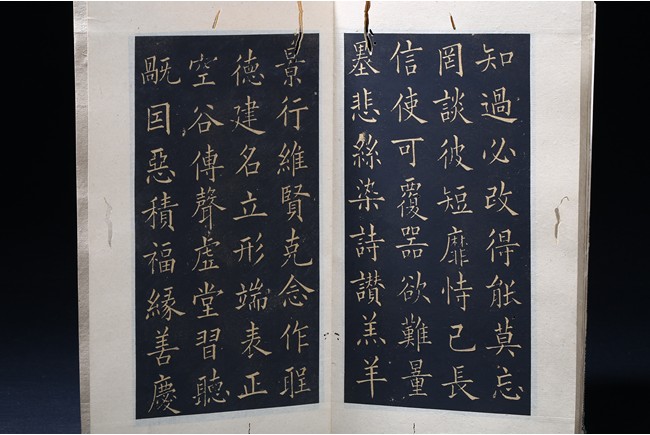 知過必改得能莫忘
罔談彼短靡恃己長
信使可覆器欲難量
墨悲絲染詩讚羔羊
景行維賢克念作聖
德建名立形端表正
空谷傳聲虛堂習聽
禍因惡積福緣善慶